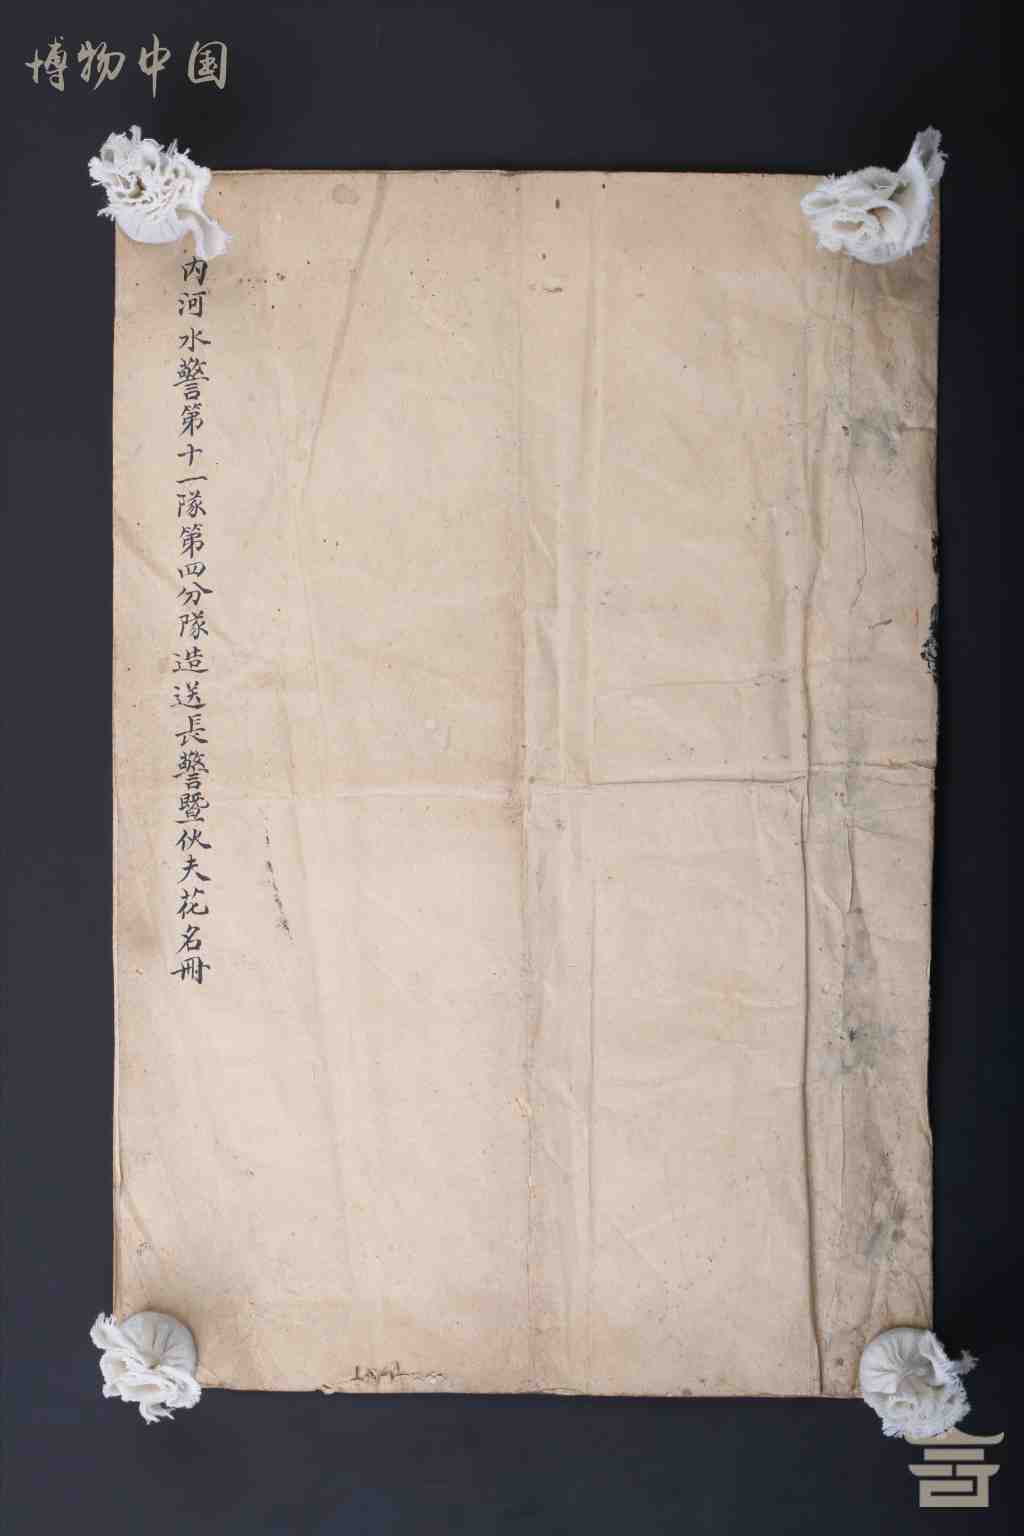 博物中国
内河水警第十一隊第四分隊造送長警暨伙夫花名冊